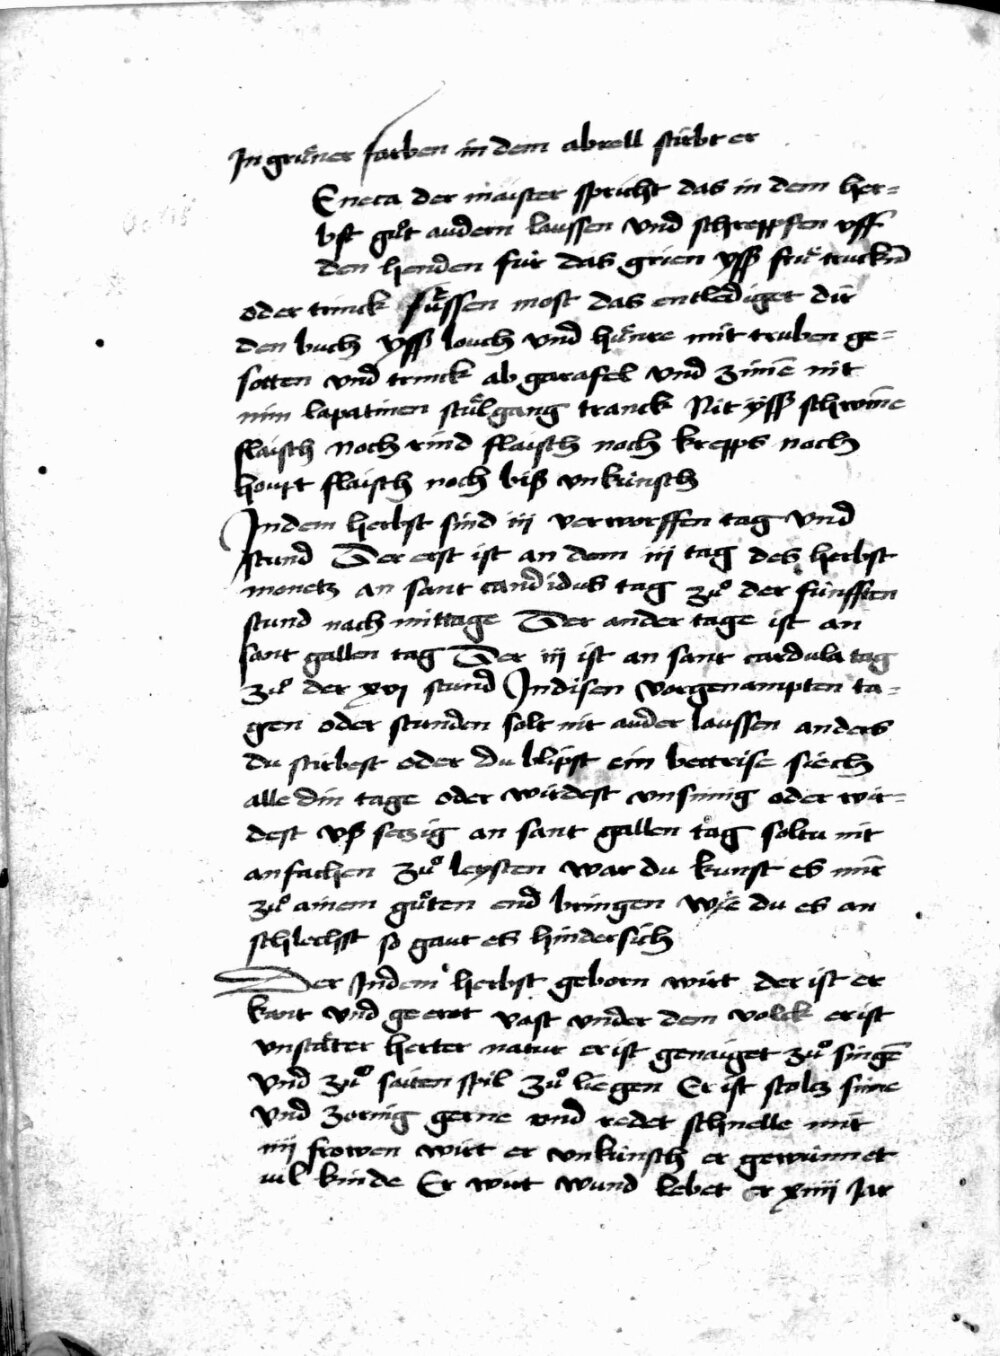 In gruͤner farben in dem abrell stirbt er
Eneca der maister spricht das in dem her=
bst guͦt audern laussen vnd schreppfen vff
den henden für das grien yss fruͤ truckñ
oder trinck suͤssen most das entlediget dir
den buch yss louch vnd huͤnre mit truben ge=
sotten vnd trinck ab garafel vnd zimē nit
nim lapatinen stuͤlgang tranck Nit yss schwine
flaisch noch rind flaisch noch krepps noch
houpt flaisch noch biß vnkünsch
In dem herbst sind iij verworffen tag vnd
stund Der erst ist an dem iij tag des herbst
monetz an sant candidus tag zuͦ der fünfften
stund nach mittage Der ander tage ist an
sant gallen tag Der iij ist an sant cardula tag
zuͦ der xvj stund In disen vorgenampten ta=
gen oder stunden solt nit auder laussen anders
du stirbest oder du blipst ein bettrise siech
alle din tage oder wirdest vnsinnig oder wir=
dest vß setzig an sant gallen tag soltu nit
anfachen zuͦ leysten war du kunst es nit
zuͦ ainem guͦten end bringen wie du es an
schlechst so gaut es hindersich
Der In dem herbst geborn wirt der ist er
kant vnd geerot vast vnder dem volck er ist
vnstäter herter natur er ist genaiget zuͦ singē
vnd zuͦ saiten spil zuͦ liegen Er ist stoltz sine
vnd zornig gerne vnd redet schnelle mit
iiij frowen wirt er vnkünsch er gewinnet
vil kinde Er wirt wund lebet er xiiij Jar